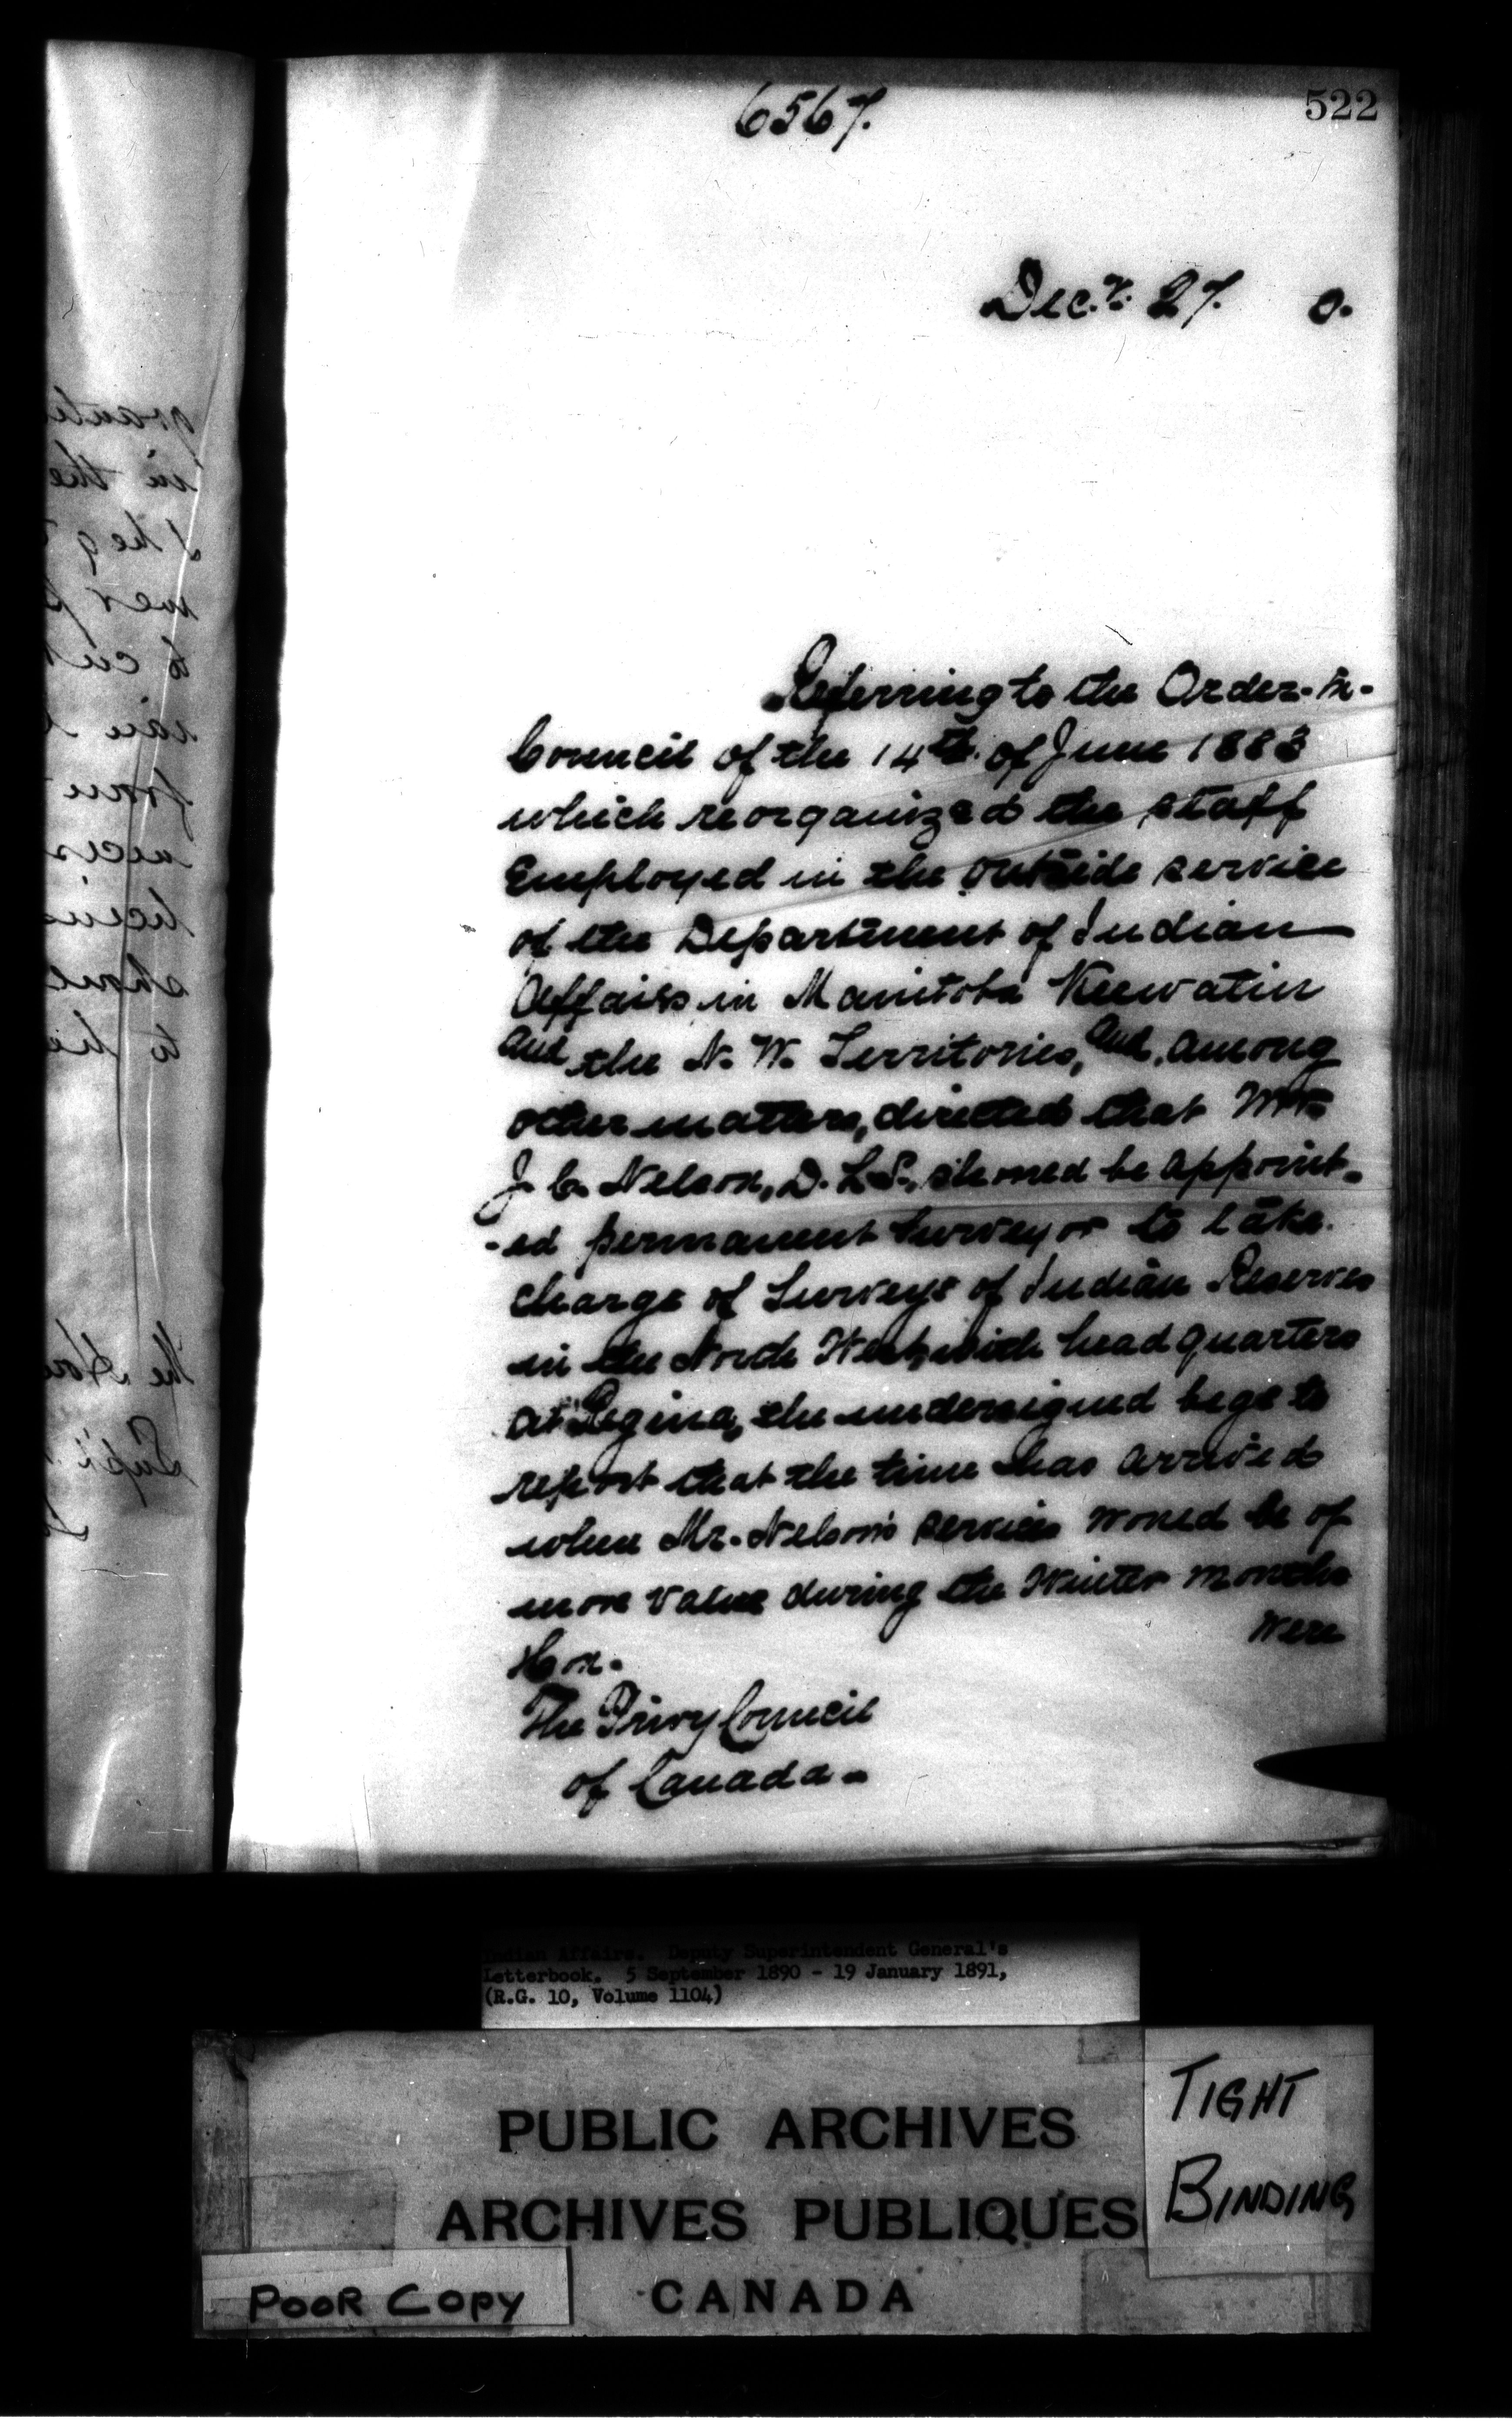 6567.
522
Dec.r. 27. 0.
Referring to the Order-in-
Council of the 14th. of June 1883
which reorganized the staff
Employed in the outside service
of the Department of Indian
Affairs in Manitoba Keewatin
and the N. W. Territories, and, among
other matters, directed that Mr.
J. C. Nelson, D. L. S., should be appoint-
-ed permanent Surveyor to take
charge of Surveys of Indian Reserves
in the North West, with head quarters
at Regina, the undersigned begs to
report that the time has arrived
when Mr. Nelson's services would be of
more value during the Winter months
were
Hon.
The Privy Council
of Canada-
Indian Affairs. Deputy Superintendent General's
Letterbook. 5 September 1890 - 19 January 1891,
(R.G. 10, Volume 1104)
PUBLIC ARCHIVES
ARCHIVES PUBLIQUES
CANADA
TIGHT
BINDING
POOR COPY